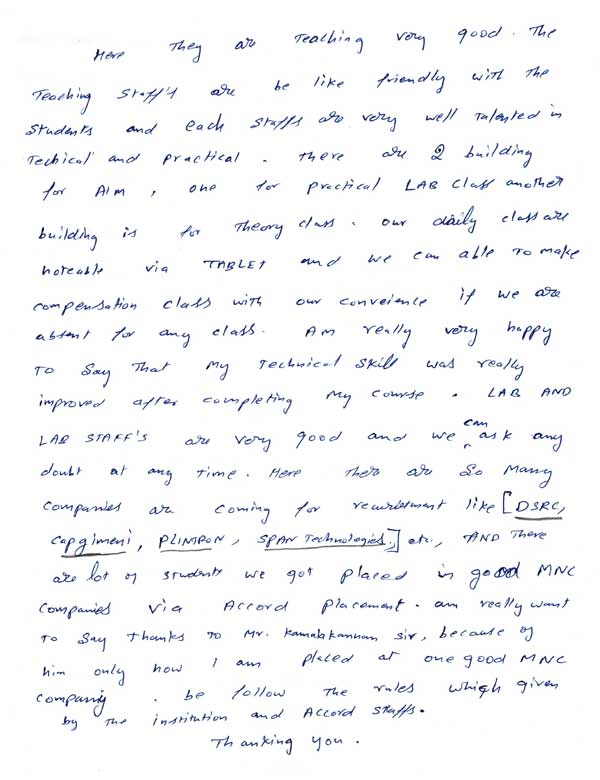 Here They are Teaching very good. The
Teaching Staff's are be like friendly with The
Students and each Staffs are very well Talented in
Techical and practical. There are 2 building
for AIM, one for practical LAB Class another
building is for Theory class. our daily class are
noteable via TABLET and we can able To make
compensation class with our conveience if we are
absent for any class. Am really very happy
To Say That My Technical Skill was really
improved after completing My Course. LAB AND
LAB STAFF'S are very good and we can ask any
doubt at any Time. Here There are So Many
Companies are coming for recuirtment like [DSRC,
Capgimeni, PLINTRON, SPAN Technologies,] etc, AND There
are lot of students we got placed in good MNC
Companies Via Accord placement. am really want
To Say thanks To Mr. Kamalakannan Sir, because of
him only now I am placed at one good MNC
company. be follow The rules which given
by The institution and Accord Staffs.
Thanking you.